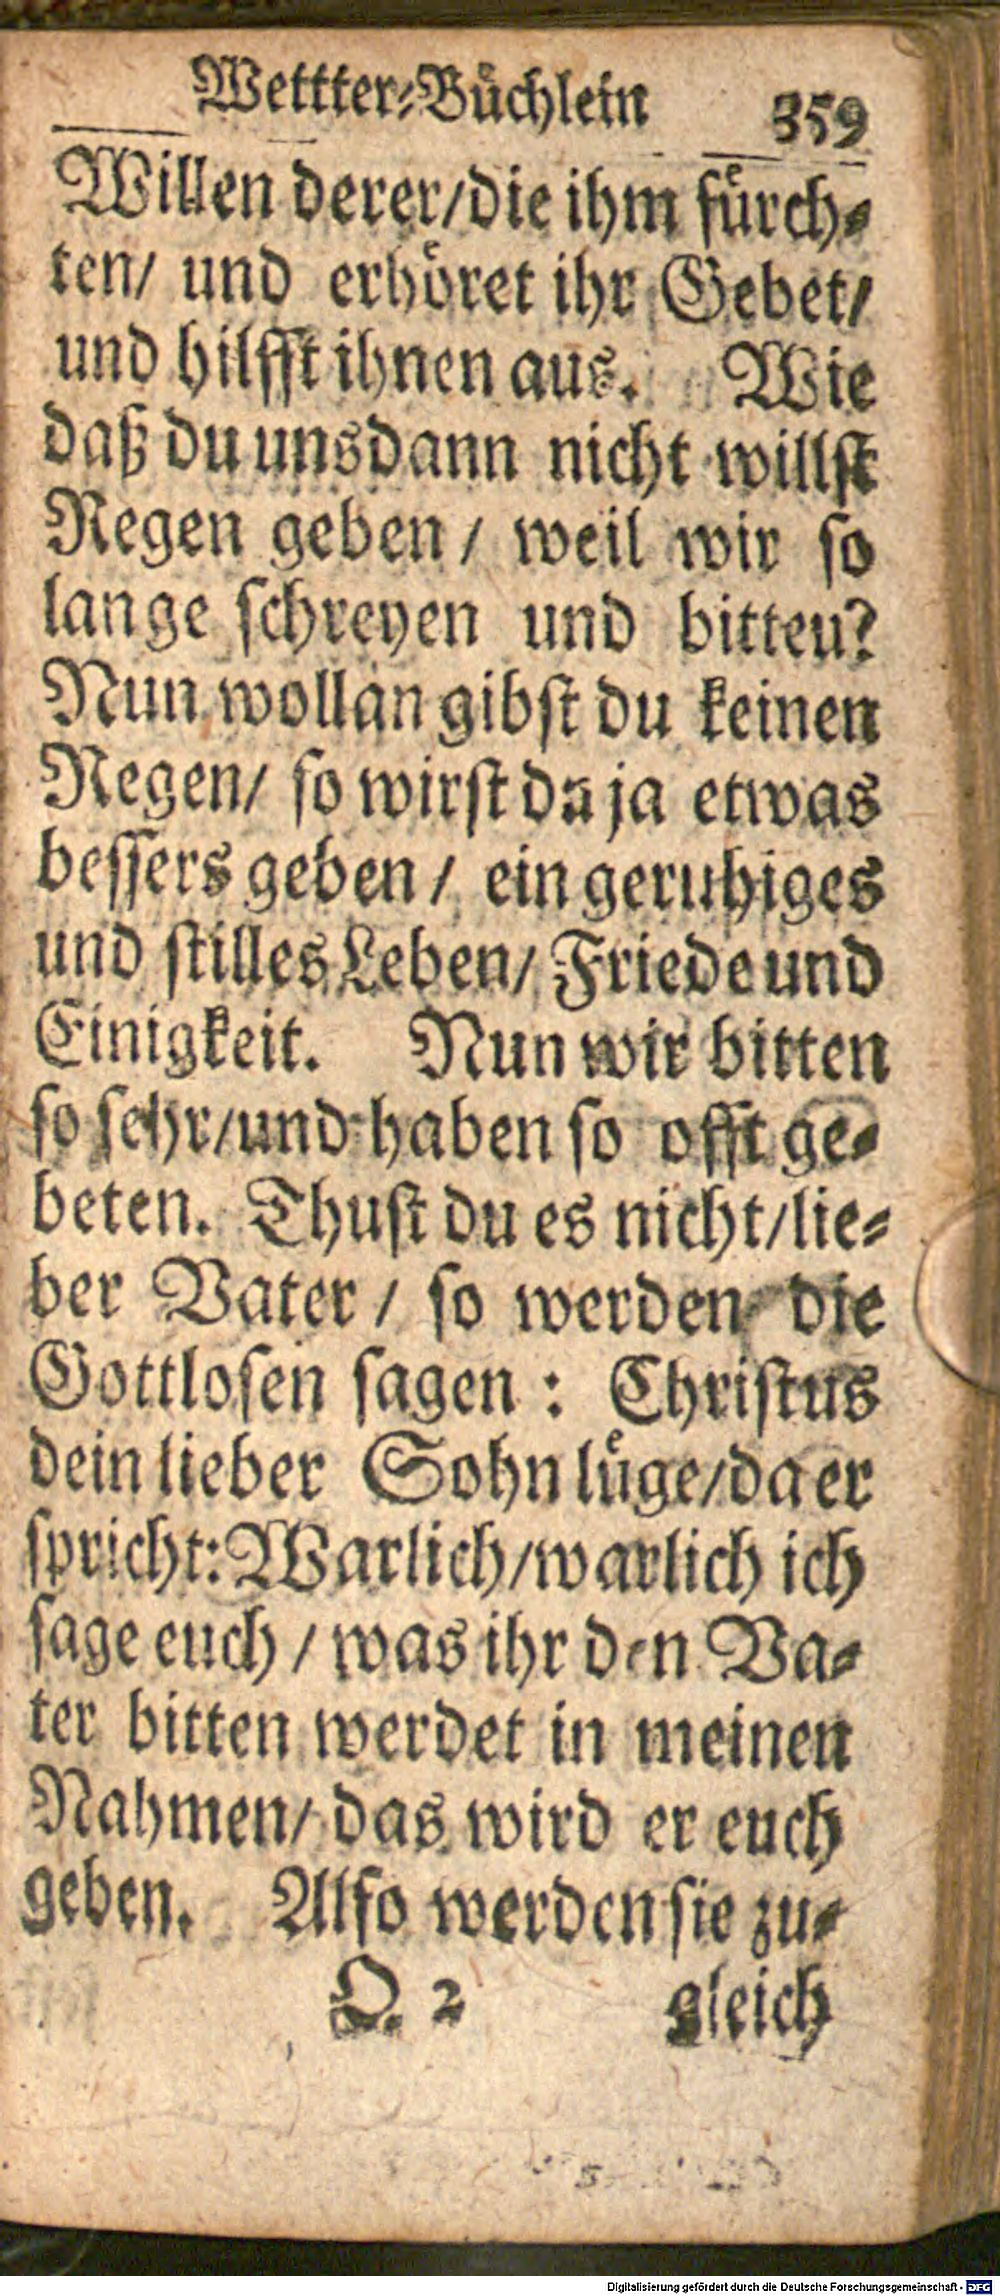 Wettter-Bůchlein 359
Willen derer/die ihm fůrch-
ten/ und erhöret ihr Gebet/
und hilfft ihnen aus. Wie
daß du uns dann nicht willst
Regen geben / weil wir so
lange schreyen und bitten?
Nun wollan gibst du keinen
Regen/ so wirst du ja etwas
bessers geben / ein geruhiges
und stilles Leben/ Friede und
Einigkeit. Nun wir bitten
so sehr/und haben so offt ge-
beten. Thust du es nicht/lie-
ber Vater / so werden die
Gottlosen sagen : Christus
dein lieber Sohn lůge/da er
spricht: Warlich/warlich ich
sage euch / was ihr den Va-
ter bitten werdet in meinen
Nahmen/ das wird er euch
geben. Also werden sie zu-
Q. 2 gleich
Digitalisierung gefördert durch die Deutsche Forschungsgemeinschaft - DFG